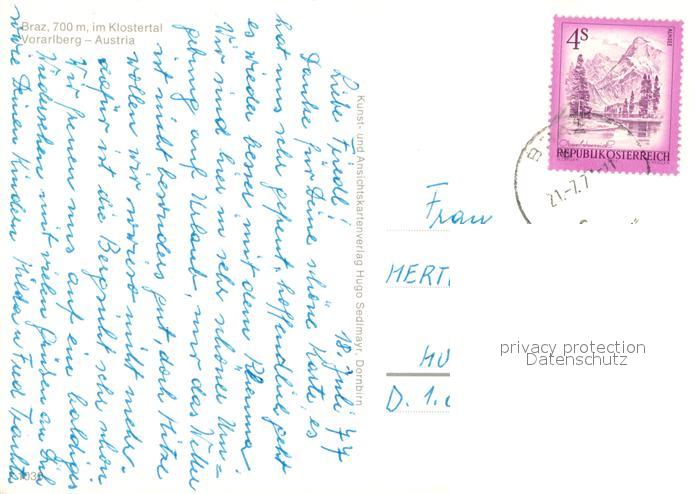 Braz, 700 m, im Klostertal
Vorarlberg – Austria
18. Juli 77
Liebe Friedl!
Danke für Deine schöne Karte es
hat uns sehr gefreut, hoffendlich geht
es wieder besser mit dem Rheuma.
Wir sind hier in sehr schöner Um=
gebung auf Urlaub, nur das Wetter
ist nicht besonders gut, doch Hitze
wollen wir sowieso nicht mehr.
dafür ist die Bergsicht sehr schön
Wir freuen uns auf ein baldiges
Wiedersehen mit vielen Grüssen an Dich
sowie Deinen Kindern Hilda u Fred
Kunst- und Ansichtskartenverlag Hugo Sedlmayr, Dornbirn
4S
REPUBLIK ÖSTERREICH
21.-7.7
Frau
HERT
HU
D.1.
privacy protection
Datenschutz